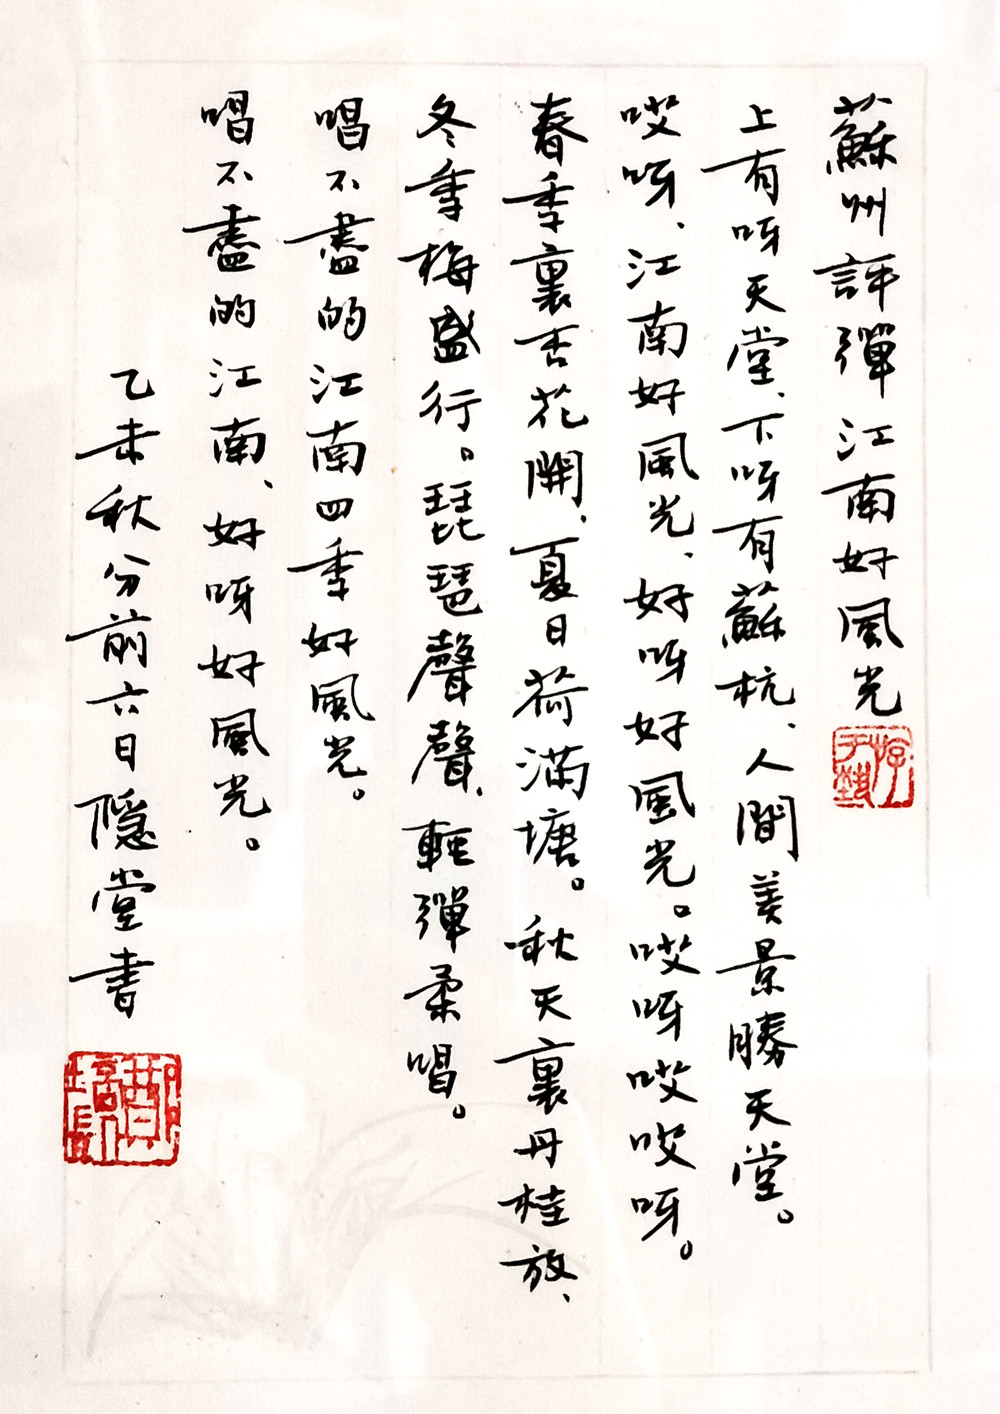 蘇州評彈江南好風光
上有呀天堂、下呀有蘇杭、人間美景勝天堂。
哎呀、江南好風光、好呀好風光。哎呀哎哎呀。
春季裏杏花開、夏日荷滿塘。秋天裏丹桂放、
冬季梅盛行。琵琶聲聲、輕彈柔唱。
唱不盡的江南四季好風光。
唱不盡的江南、好呀好風光。
乙未秋分前六日隱堂書